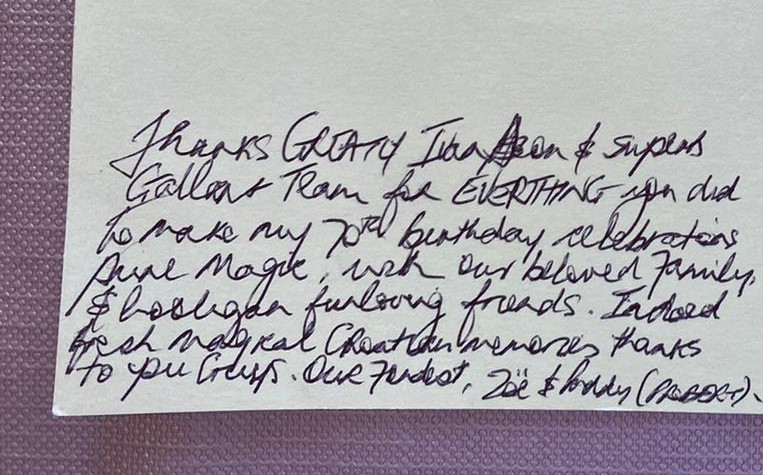 Thanks GREATLY Ivan, & superb
Gallant Team for EVERTHING you did
to make my 70th birthday celebrations
pure Magic, with our beloved Family,
& hooligan funloving friends. Indeed
fresh magical Croatian memories thanks
to you Guys. Our Fondest, Zoë & Paddy (PROBERT).